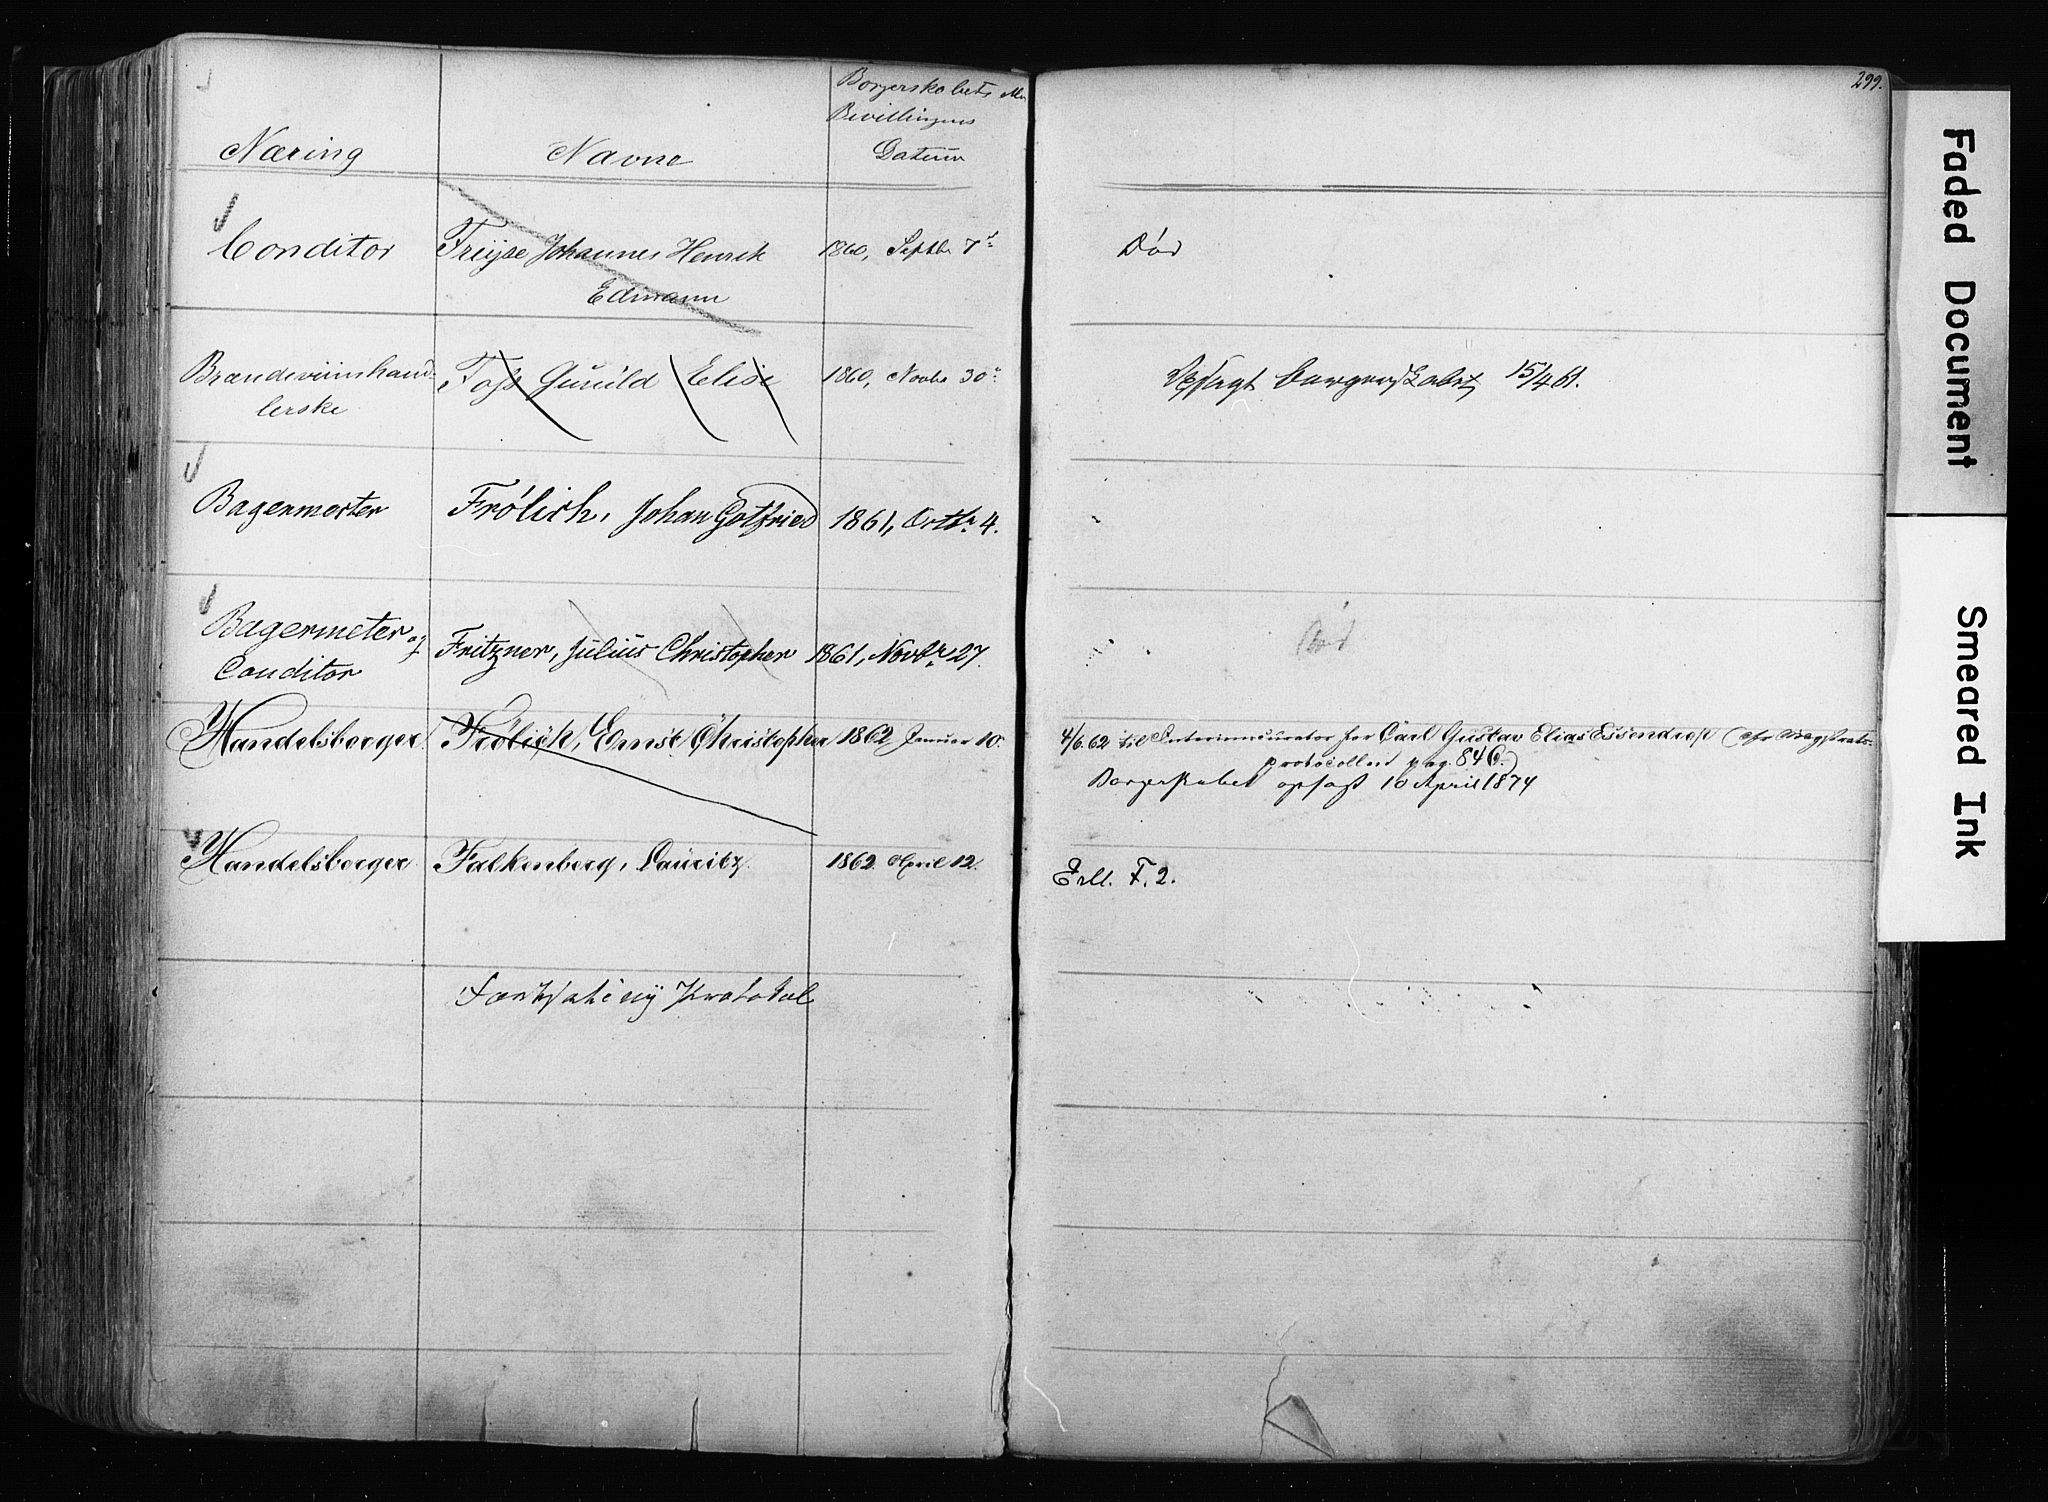 299.
Borgerskabets
Bevillingens
Næring Navne Datum
Conditor Freyse Johannes Henrik 1860, Septbr 7d Död
Edmann
Brændeviinshand- Foss Gunild Elise 1860, Novbr 30 Opsagt Borgerskabet 15/4 61.
lerske
Bagermester Frölich, Johan Gotfried 1861, Octbr 4.
Bagermeter og Död
Conditor Fritzner, Julius Christopher 1861, Novbr 27.
Handelsborger Frölich, Ernst Christopher 1862 Januar 10. 4/6. 62 til Interimscurator for Carl Gustav Elias Essendrop (cfr Magistrats-
protocollen pag. 846.)
Borgerskabet opsagt 10 April 1874
Handelsborger Falkenberg, Lauritz 1862. April 12. Erll. F. 2.
Fortsat i ny Protokol
Faded Document
Smeared Ink